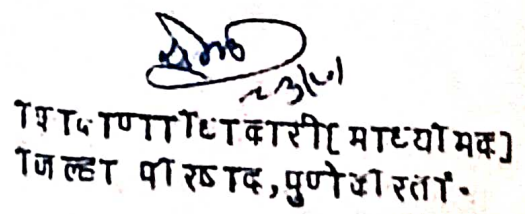 शिक्षणाधिकारी[माध्यमिक]
जिल्हा परिषद,पुणेकरिता.